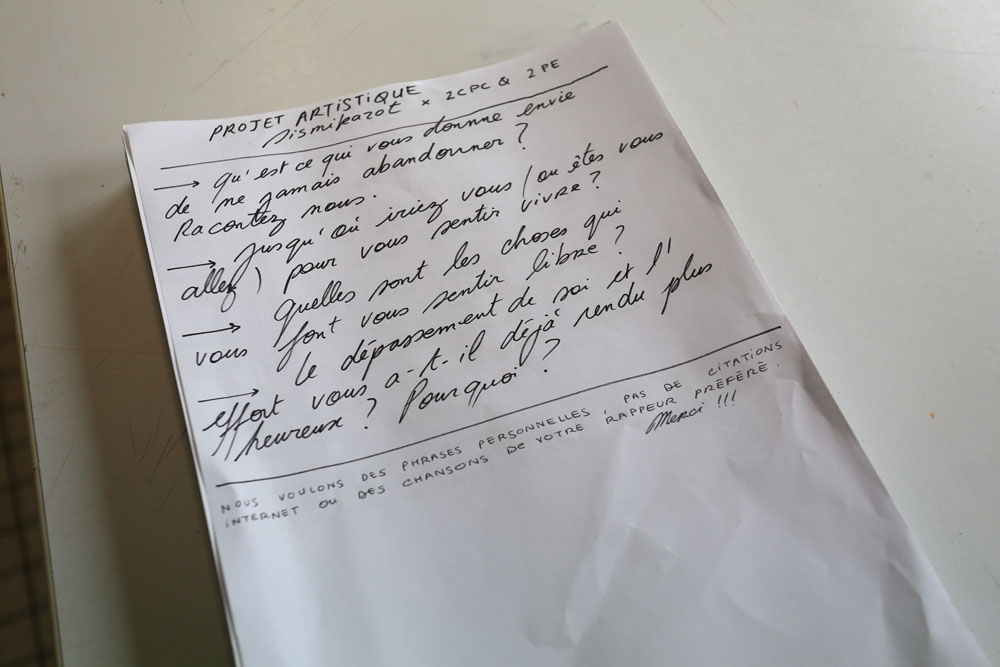 PROJET ARTISTIQUE
Jismikazot × 2CPC & 2PE
→ Qu'est ce qui vous donnne envie
de ne jamais abandonner ?
Racontez nous.
→ Jusqu'où iriez vous (ou êtes vous
allez) pour vous sentir vivre ?
→ Quelles sont les choses qui
vous font vous sentir libre ?
→ le dépassement de soi et l'
effort vous a-t-il déjà rendu plus
heureux ? Pourquoi ?
NOUS VOULONS DES PHRASES PERSONNELLES, PAS DE CITATIONS
INTERNET OU DES CHANSONS DE VOTRE RAPPEUR PRÉFÉRÉ.
Merci !!!